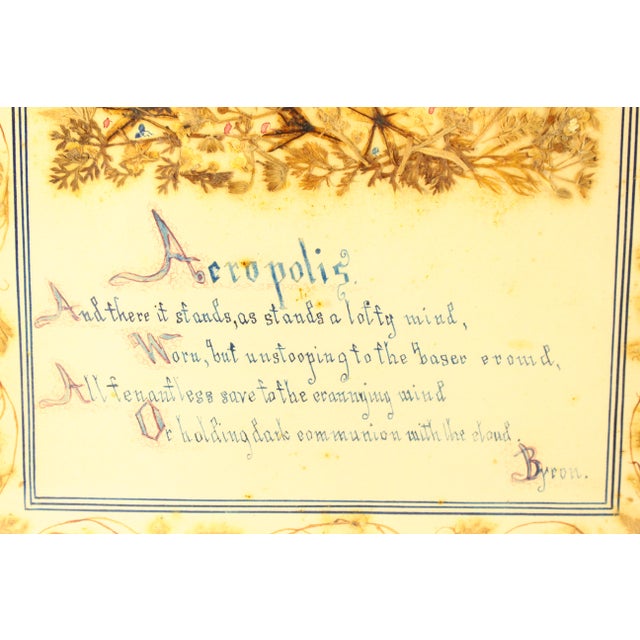 Acropolis.
And there it stands, as stands a lofty mind,
Worn, but unstooping to the baser crowd,
All tenantless save to the crannying wind
Or holding dark communion with the cloud.
Byron.